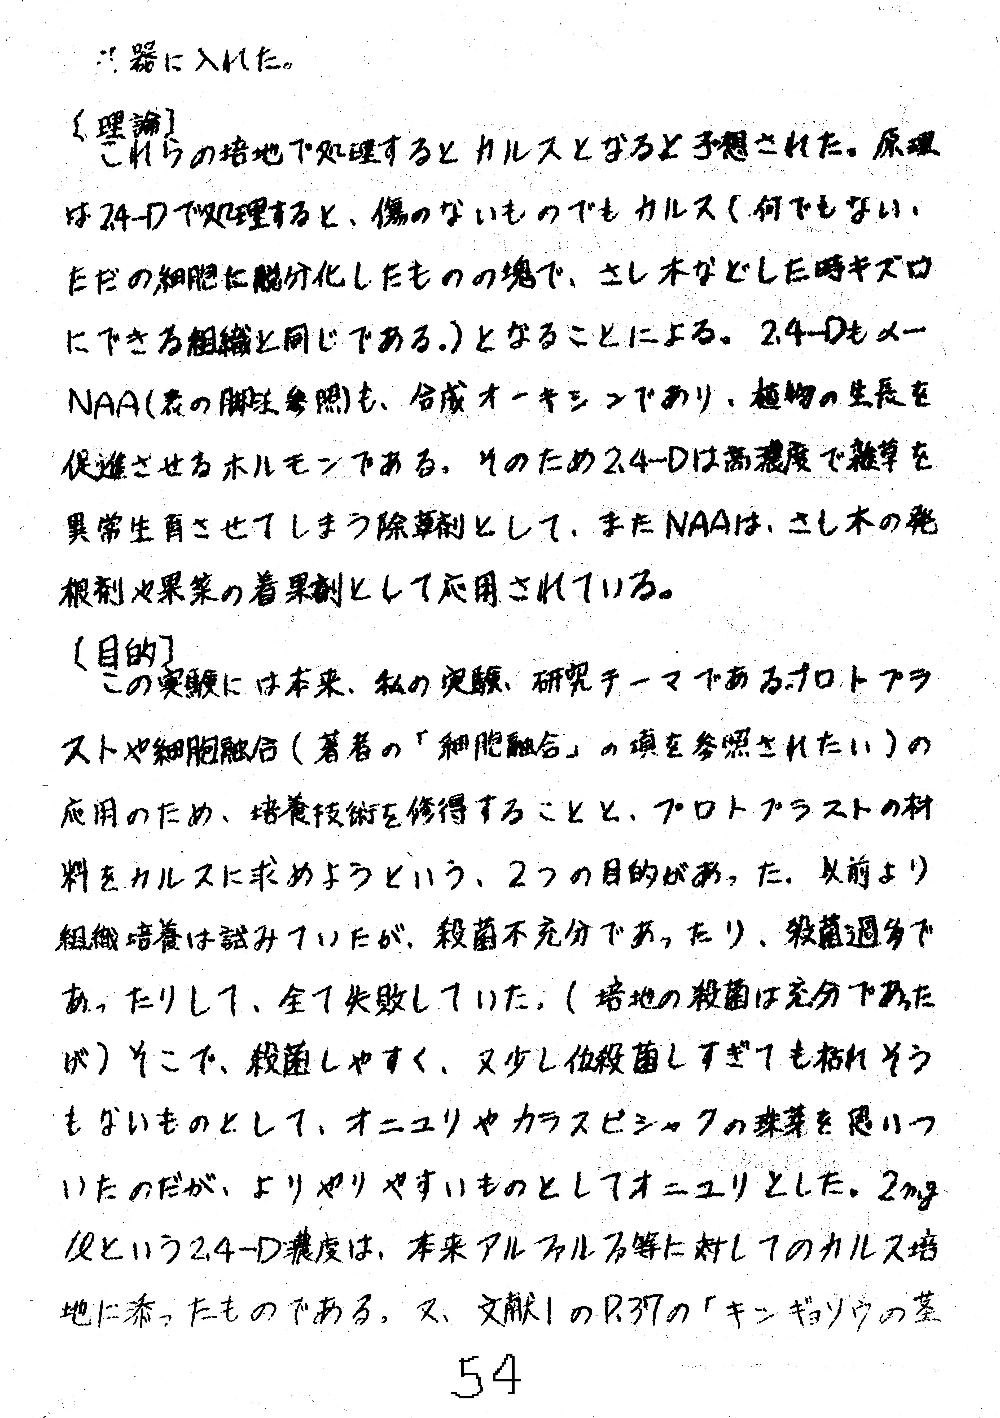 器に入れた。
〔理論〕
これらの培地で処理するとカルスとなると予想された。原理
は2,4-Dで処理すると、傷のないものでもカルス(何でもない、
ただの細胞に脱分化したものの塊で、さし木などした時キズ口
にできる組織と同じである。)となることによる。2,4-Dもメー
NAA(表の脚注参照)も、合成オーキシンであり、植物の生長を
促進させるホルモンである。そのため2,4-Dは高濃度で雑草を
異常生育させてしまう除草剤として、またNAAは、さし木の発
根剤や果菜の着果剤として応用されている。
〔目的〕
この実験には本来、私の実験、研究テーマであるプロトプラ
ストや細胞融合(著者の「細胞融合」の項を参照されたい)の
応用のため、培養技術を修得することと、プロトプラストの材
料をカルスに求めようという、2つの目的があった。以前より
組織培養は試みていたが、殺菌不充分であったり、殺菌過多で
あったりして、全て失敗していた。(培地の殺菌は充分であった
が)そこで、殺菌しやすく、又少し位殺菌しすぎても枯れそう
もないものとして、オニユリやカラスビシャクの珠芽を思いつ
いたのだが、よりやりやすいものとしてオニユリとした。2mg
/ℓという2,4-D濃度は、本来アルファルファ等に対してのカルス培
地に添ったものである。又、文献1のP.37の「キンギョソウの茎
54